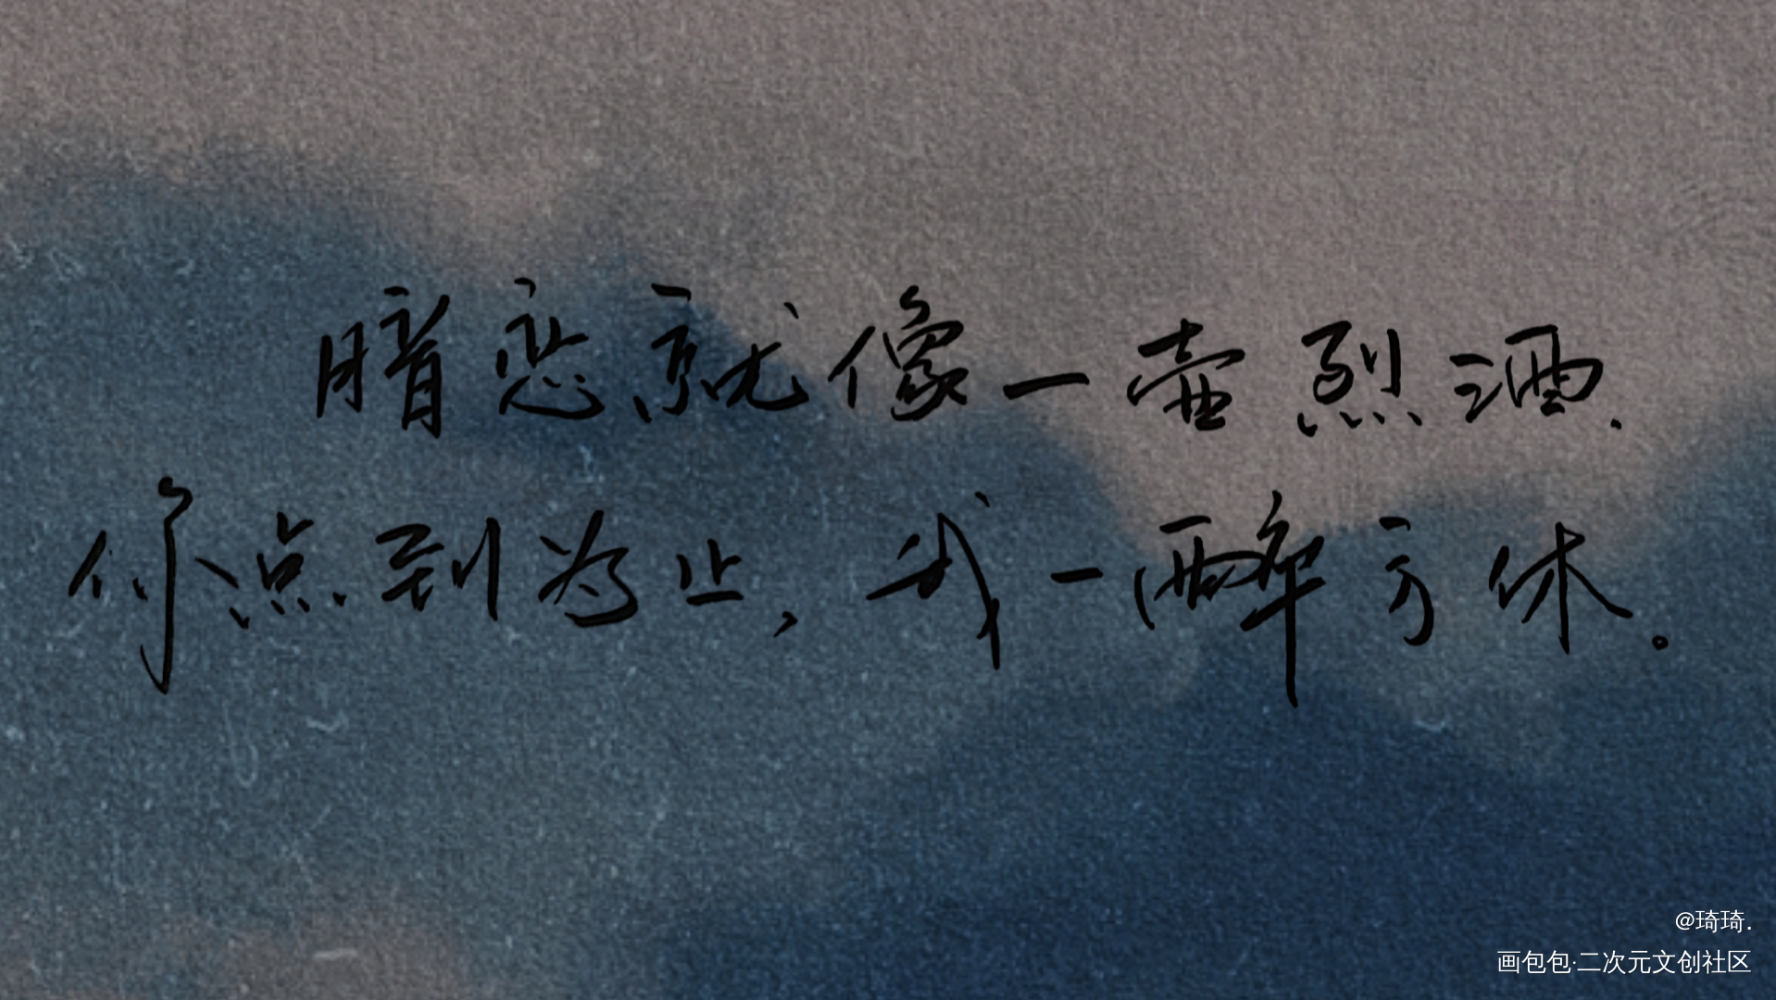 暗恋就像一壶烈酒.
你点到为止,我一醉方休。
@琦琦.
画包包·二次元文创社区